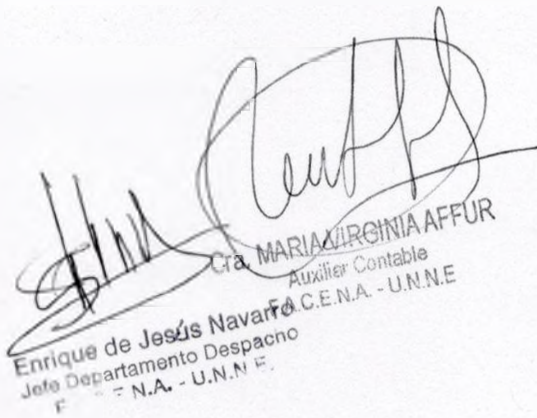 Cra. MARIA VIRGINIA AFFUR
Auxiliar Contable
F.A.C.E.N.A. - U.N.N.E
Enrique de Jesús Navarro
Jefe Departamento Despacho
F N.A. - U.N.N.E.